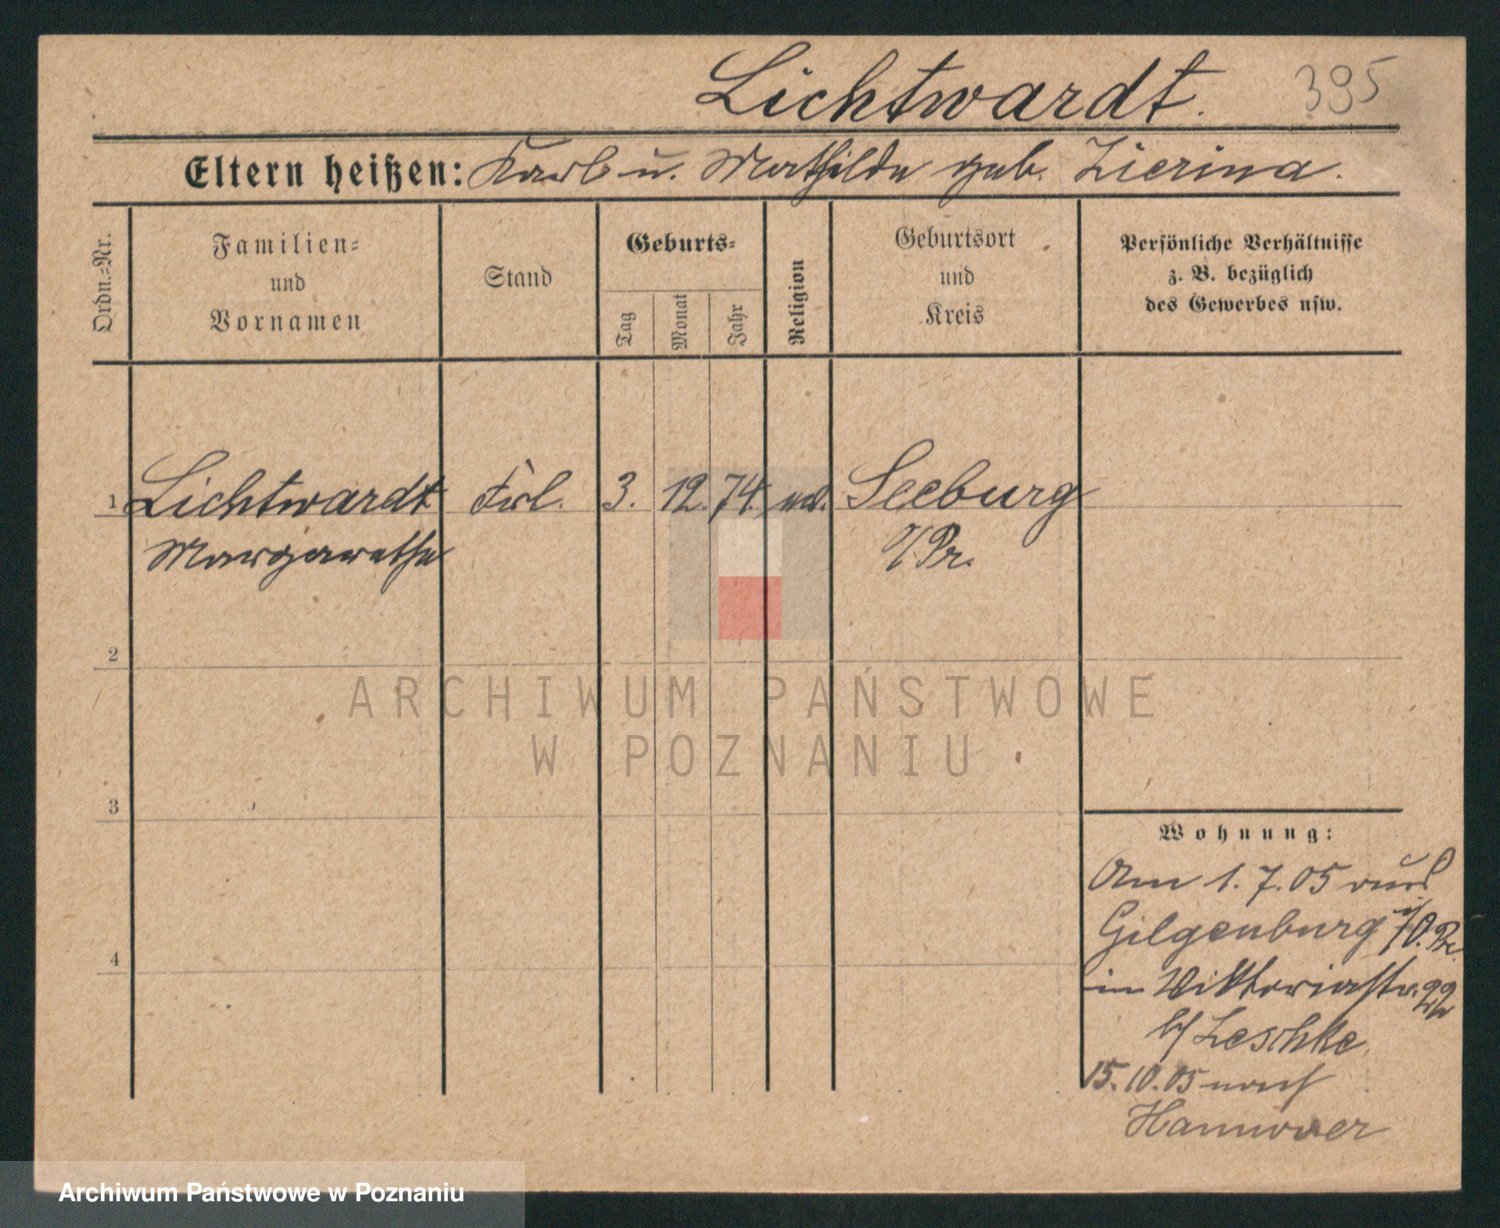 Lichtwardt. 395
Eltern heißen: Karl u. Mathilde geb. Zierina.
Ordn.=Nr.
Familien=
und
Vornamen
Stand
Geburts=
Tag
Monat
Jahr
Religion
Geburtsort
und
Kreis
Persönliche Verhältnisse
z. B. bezüglich
des Gewerbes usw.
1 Lichtwardt Frl. 3. 12. 74. Seeburg
Margarethe O/Pr.
2
3
4
Wohnung:
Am 1. 7. 05 aus
Gilgenburg i/O. Pr.
in Viktoriastr. 22
b/ Leschke
15. 10. 05 nach
Hannover
ARCHIWUM PAŃSTWOWE
W POZNANIU
Archiwum Państwowe w Poznaniu